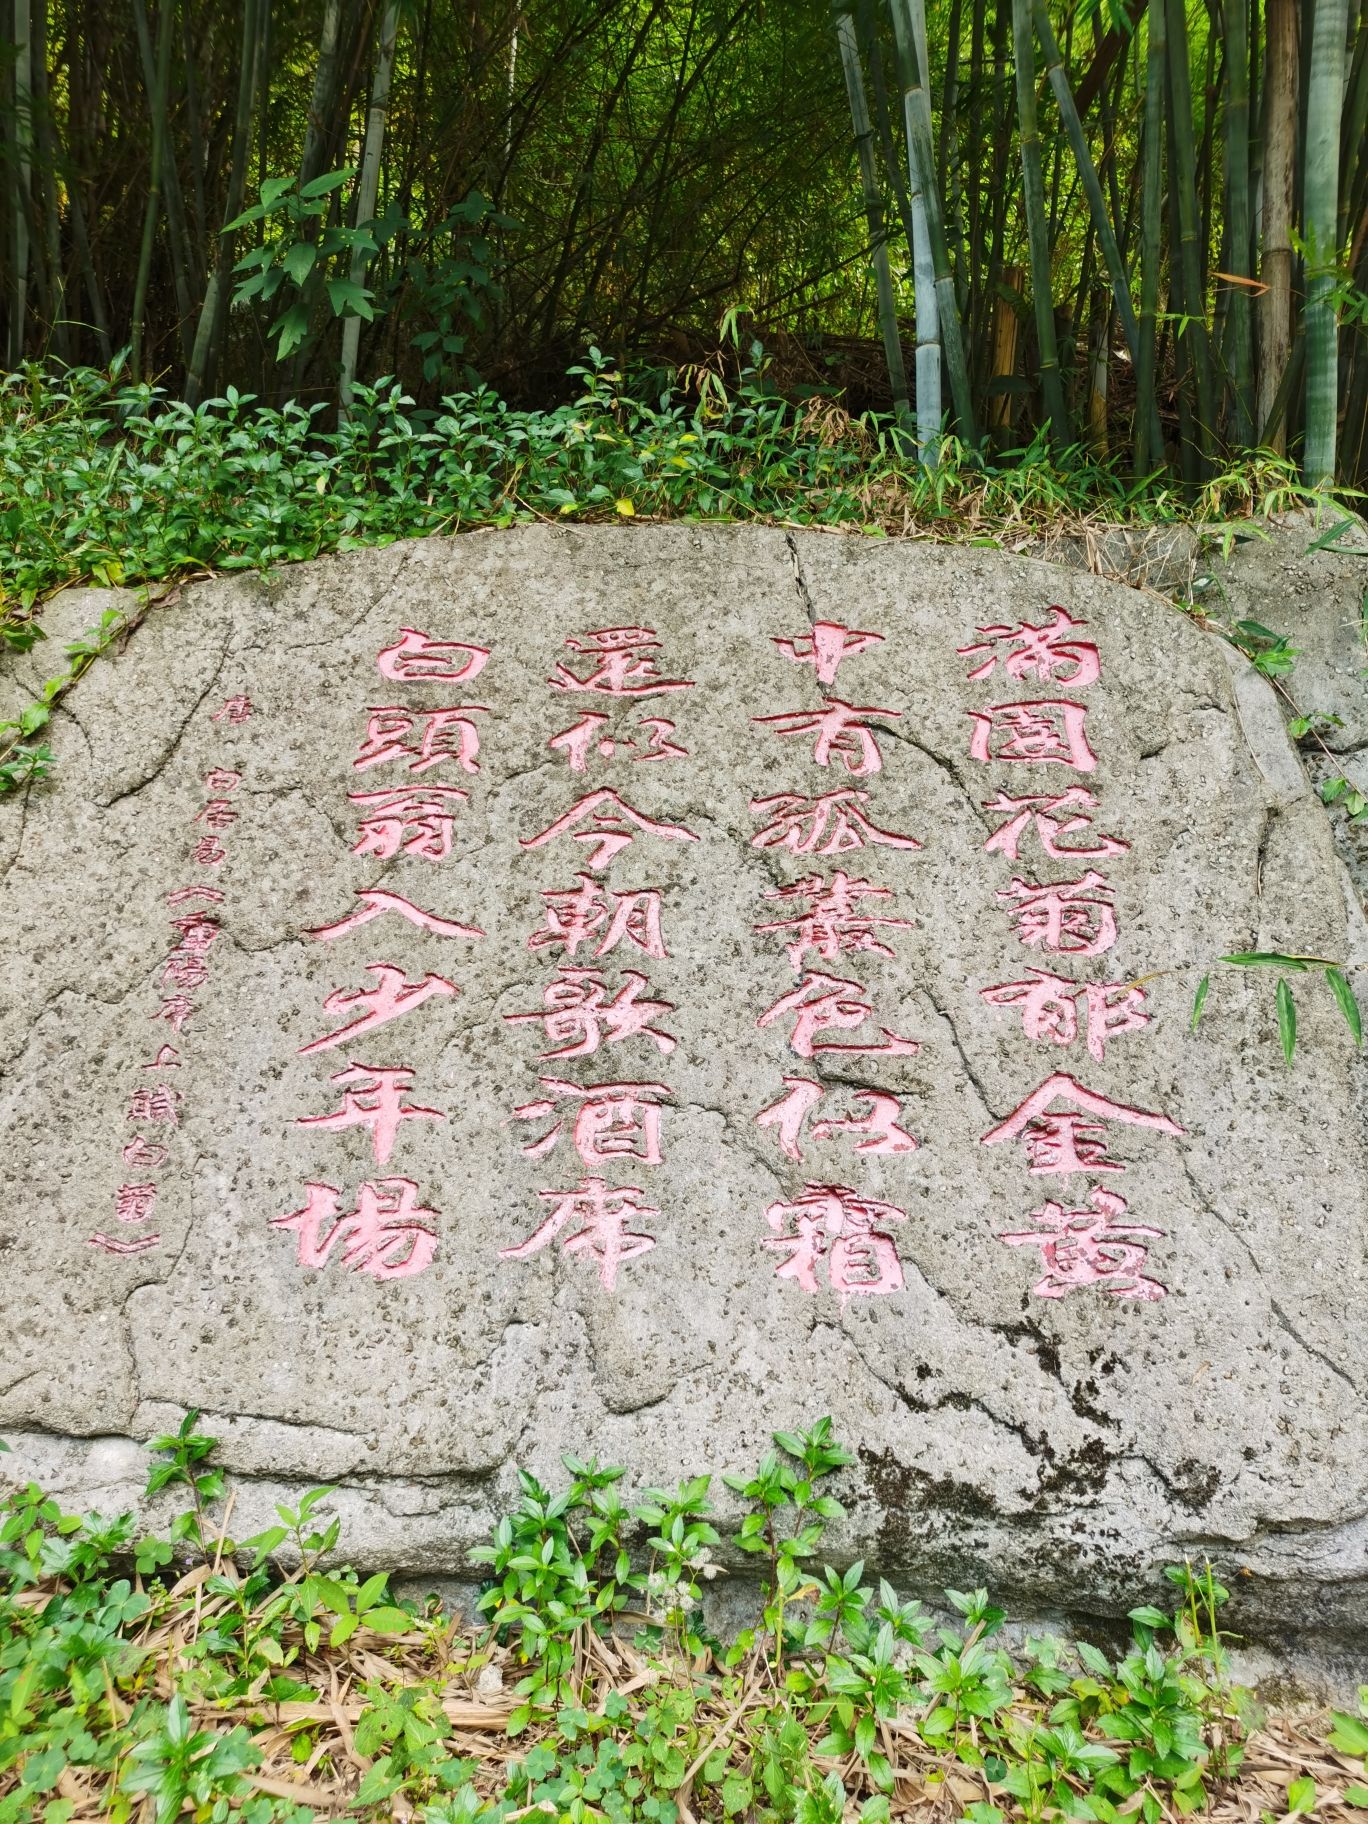 滿園花菊郁金黄
中有孤叢色似霜
還似今朝歌酒席
白頭翁入少年場
唐 白居易《重陽席上賦白菊》